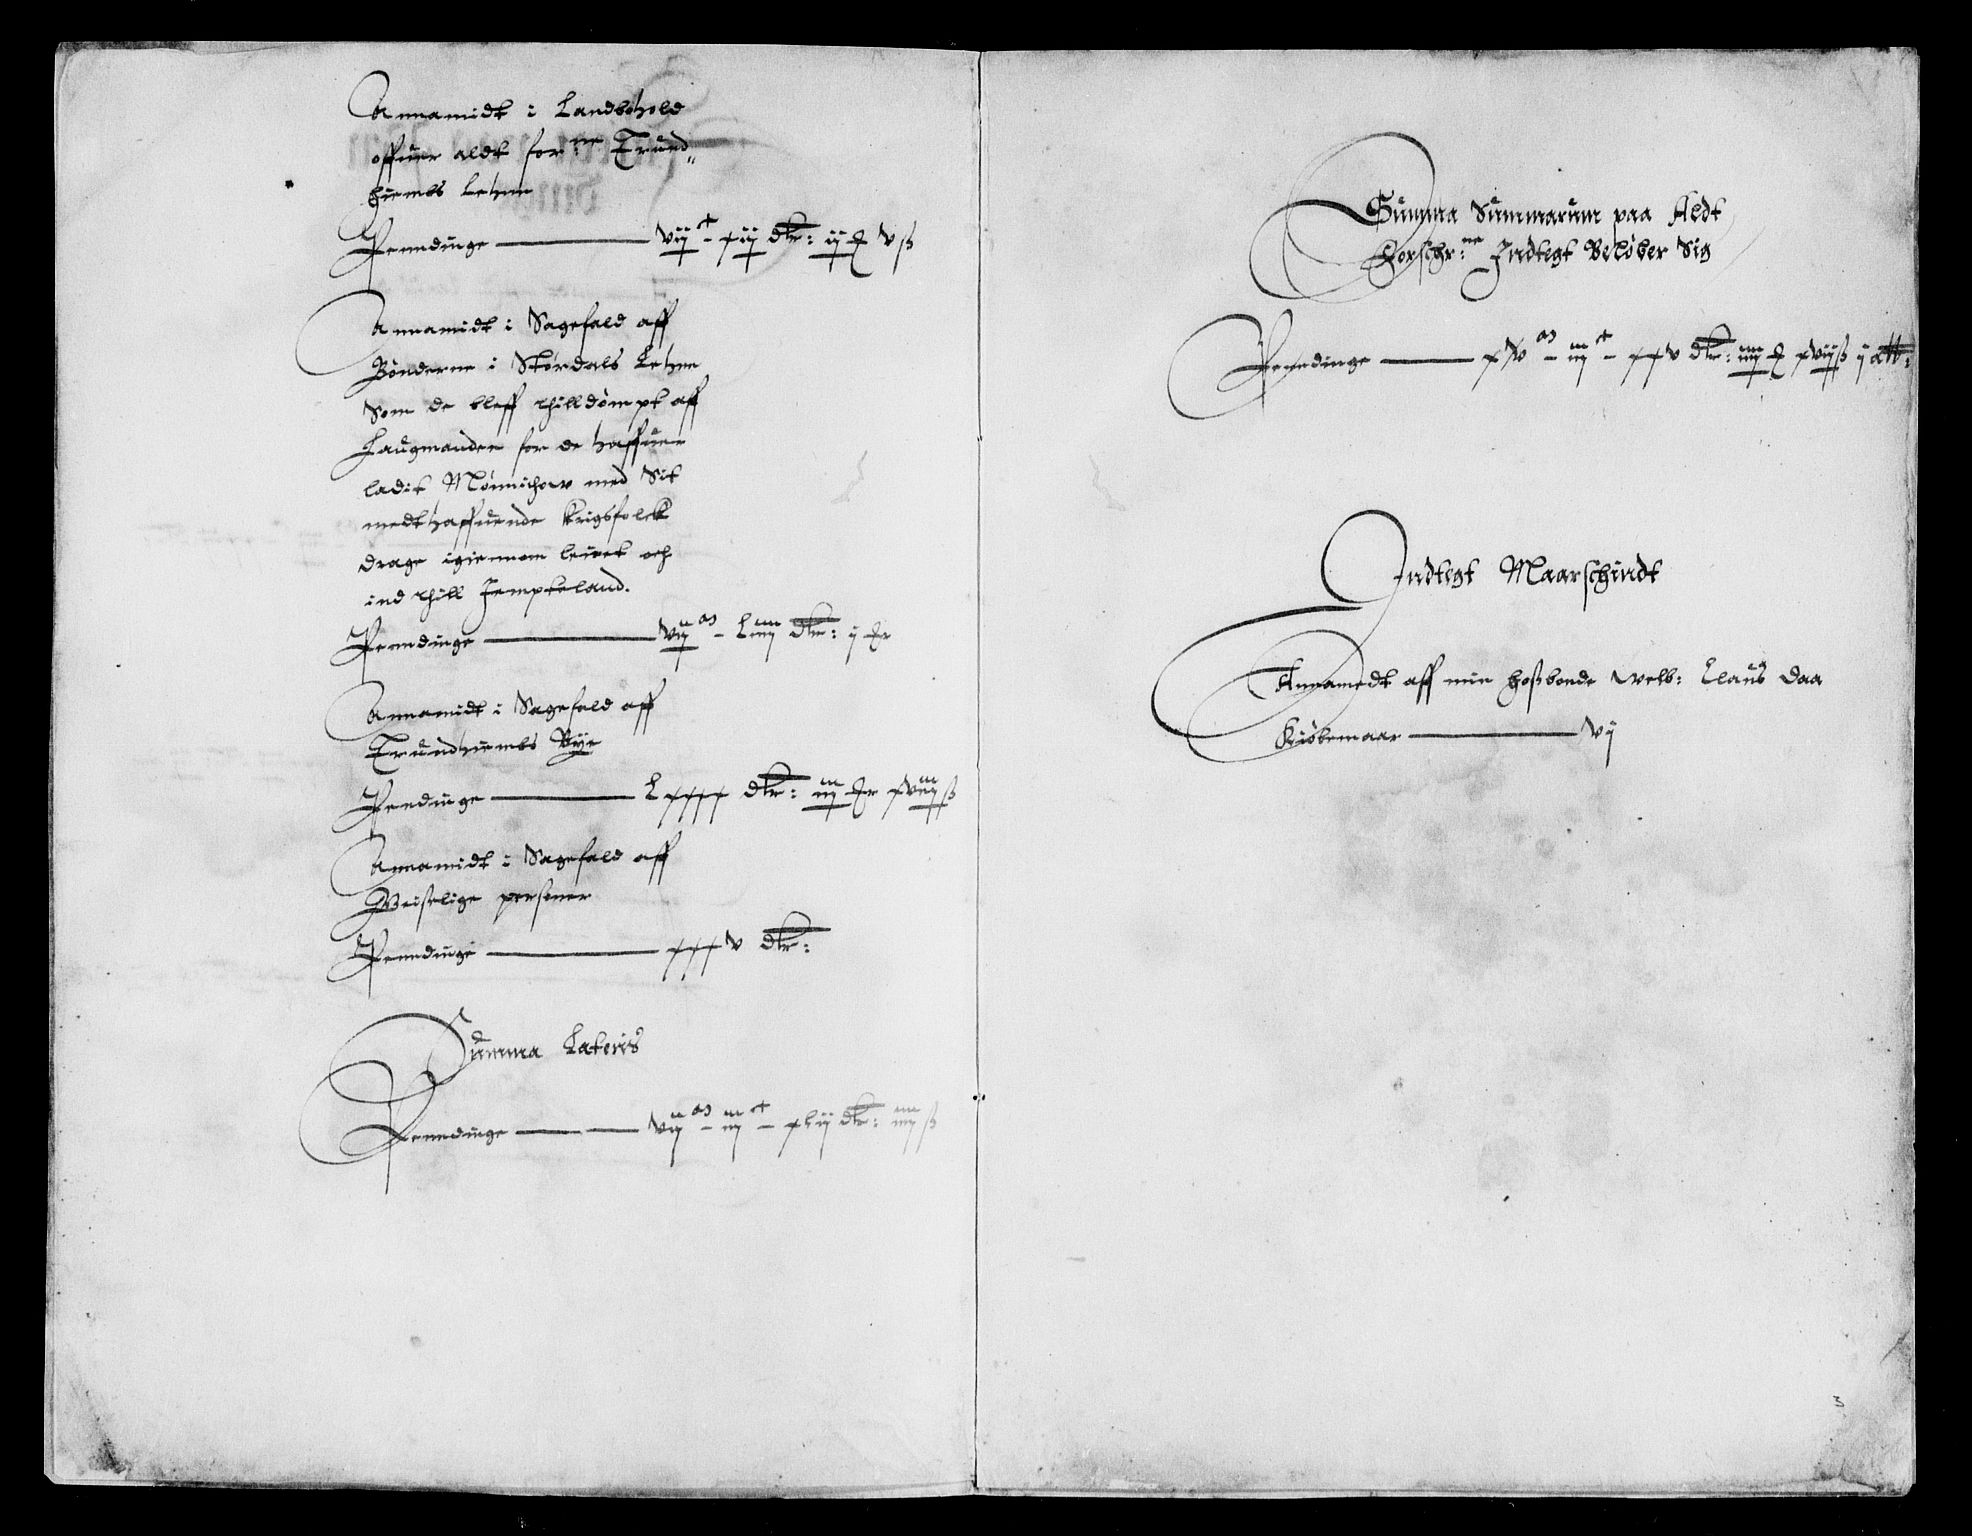 Annamidt i Landbohold
offuer aldt for:ne Trund„
hiembs Lehne
Penndinge — vijc xij dlr: ij ꝶ v ß
Annamidt i Sagefald aff
Bønderne i Størdals Lehne
Som de bleff thilldømpt aff
Laugmanden for de haffuer
ladit Mønnichow med Sit
medthaffuende Krigsfolck
drage igiennom leiret och
ind thill Jempteland.
Penndinge — vijm Liiij dlr: ij ꝶ
Annamidt i Sagefald aff
Trundhiembs Bye
Pendinge — Lxxxx dlr: iij ꝶ xviij ß
Annamidt i Sagefald aff
Geistlige personer
Penndinge — xxxv dlr:
Summa Lateris
Penndinge — dlr: iiij ß
Summa Summarum paa Aldt
forschr:ne Indtegt Beløber Sig
Penndinge — xvm iijc xxv dlr: iiij ꝶ xvij ß ij alb:
Indtegt Maarschindt
Annamedt aff min hoßbonde Welb: Claus Daa
Kiøbemaar — vj
3